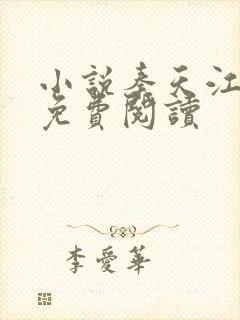 小說奉天江
免費閱讀
李愛華